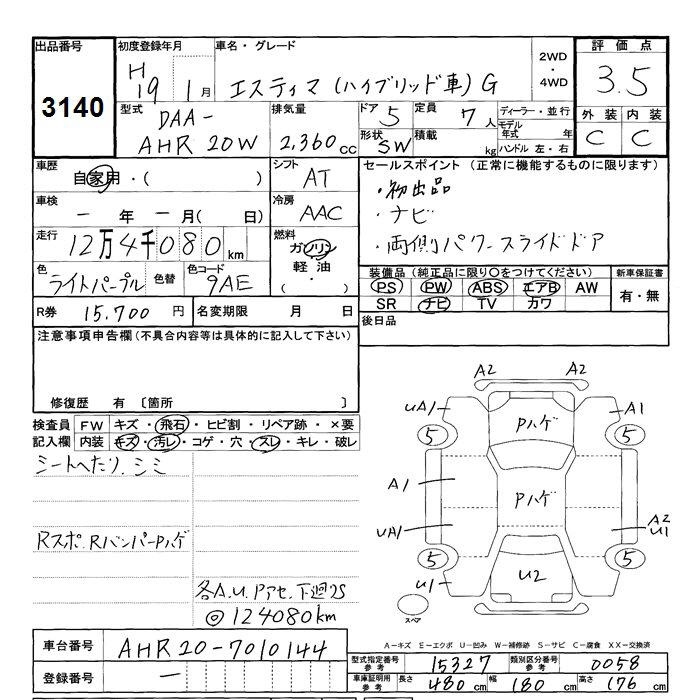 出品番号
3140
初度登録年月
H19 1月
車名・グレード
エスティマ (ハイブリッド車) G
2WD
・
4WD
評価点
3.5
型式
DAA-
AHR20W
排気量
2,360cc
ドア 5
定員 7人
形状 SW
積載 kg
ディーラー・並行
モデル年式 年
ハンドル 左・右
外装 内装
C C
車歴
自家用・( )
シフト
AT
車検
－年－月( 日)
冷房
AAC
走行
12万4千080km
燃料
ガソリン
・
軽油
( )
色
ライトパープル
色替
色コード
9AE
セールスポイント (正常に機能するものに限ります)
・初出品
・ナビ
・両側パワースライドドア
装備品 (純正品に限り○をつけてください)
PS PW ABS エアB AW
SR ナビ TV カワ
新車保証書
有・無
R券 15,700円
名変期限 月 日
後日品
注意事項申告欄(不具合内容等は具体的に記入して下さい)
修復歴 有 〔箇所 〕
検査員記入欄
FW キズ・飛石・ヒビ割・リペア跡・×要
内装 キズ・汚レ・コゲ・穴・スレ・キレ・破レ
シートへたり、シミ
Rスポ、RバンパーPハゲ
各A.U.Pアセ、下廻りS
◎124080km
A2 A2
UA1 A1
Pハゲ
5 5
A1
Pハゲ
UA1
A2
U1
5 5
U1
U2
スペア
A－キズ E－エクボ U－凹み W－補修跡 S－サビ C－腐食 XX－交換済
車台番号 AHR20-7010144
登録番号 －
型式指定番号 参考 15327
類別区分番号 参考 0058
車庫証明用 参考 長さ 480cm 幅 180cm 高さ 176cm